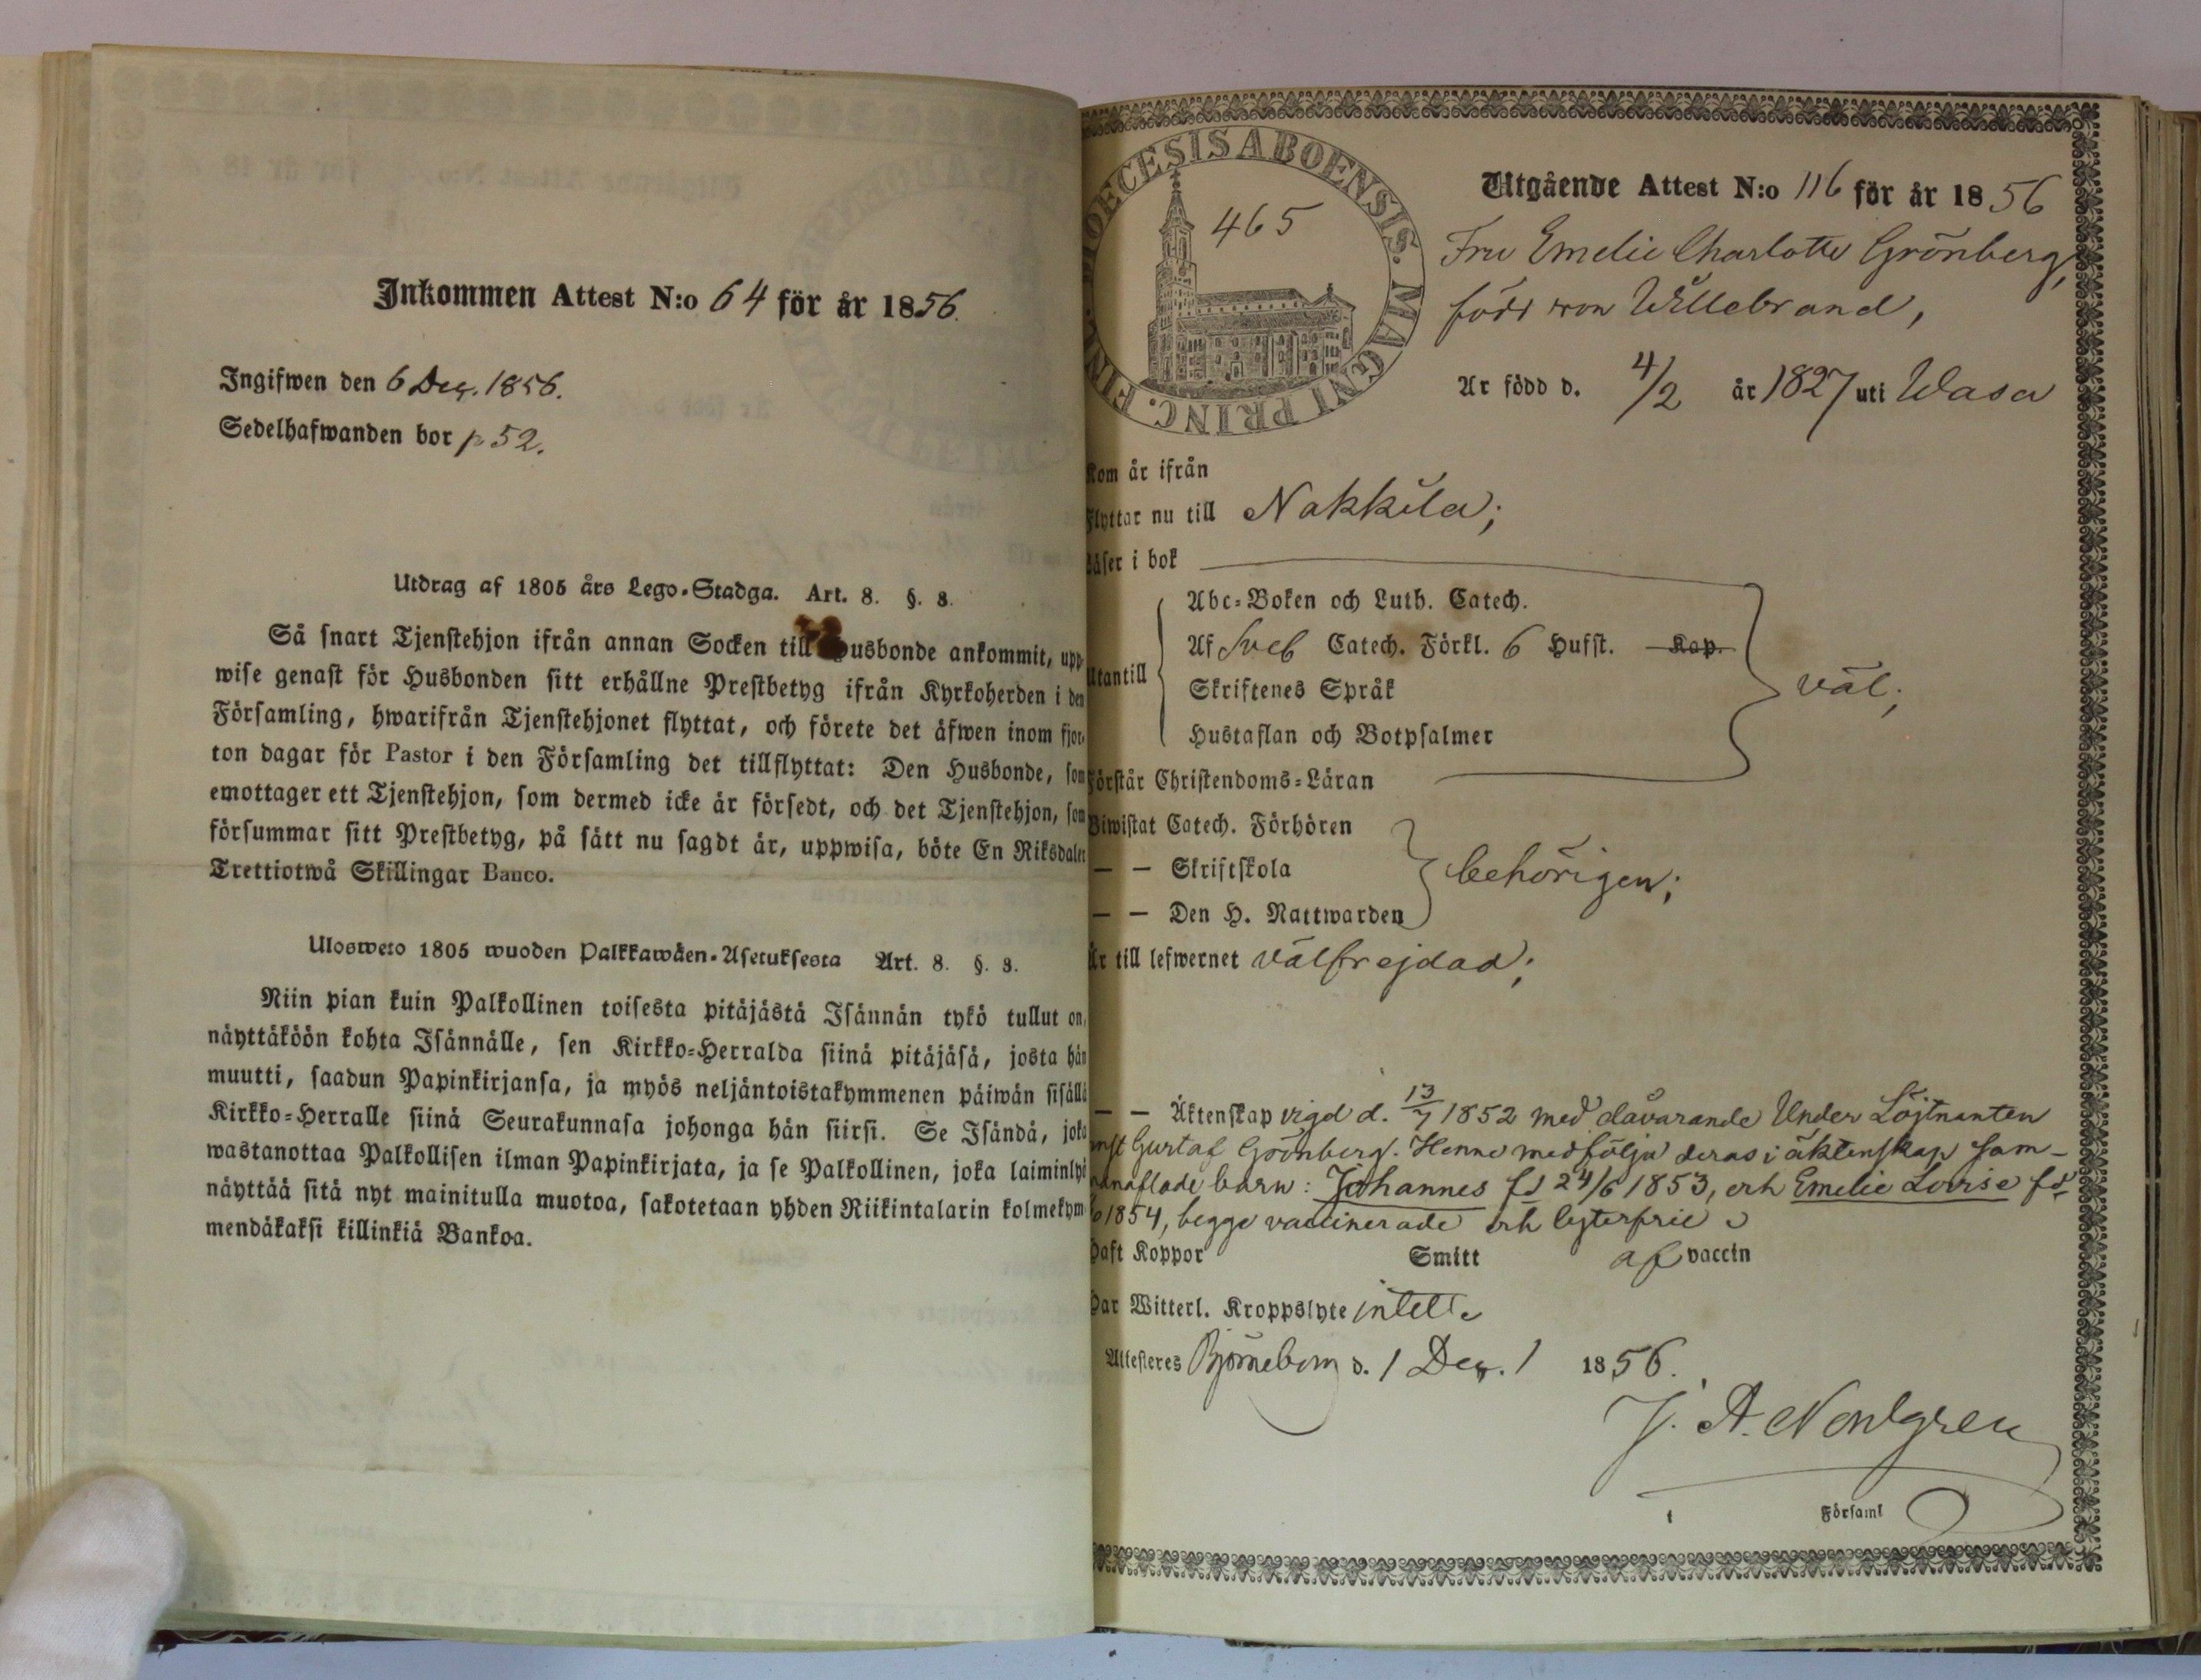 Inkommen Attest N:o 64 för år 1856.
Ingifwen den 6 Dec. 1856.
Sedelhafwanden bor p 52.
Utdrag af 1805 års Lego-Stadga. Art. 8. §. 3.
Så snart Tjenstehjon ifrån annan Socken till Husbonde ankommit, upp-
wise genast för Husbonden sitt erhållne Prestbetyg ifrån Kyrkoherden i den
Församling, hwarifrån Tjenstehjonet flyttat, och förete det äfwen inom fjor-
ton dagar för Pastor i den Församling det tillflyttat: Den Husbonde, som
emottager ett Tjenstehjon, som dermed icke är försedt, och det Tjenstehjon, som
försummar sitt Prestbetyg, på sätt nu sagdt är, uppwisa, böte En Riksdaler
Trettiotwå Skillingar Banco.
Ulosweto 1805 wuoden Palkkawäen-Asetuksesta Art. 8. §. 3.
Niin pian kuin Palkollinen toisesta pitäjästä Isännän tykö tullut on,
näyttäköön kohta Isännälle, sen Kirkko-Herralda siinä pitäjäsä, josta hän
muutti, saadun Papinkirjansa, ja myös neljäntoistakymmenen päiwän sisällä
Kirkko-Herralle siinä Seurakunnasa johonga hän siirsi. Se Isändä, joka
wastanottaa Palkollisen ilman Papinkirjata, ja se Palkollinen, joka laiminlyö
näyttää sitä nyt mainitulla muotoa, sakotetaan yhden Riikintalarin kolmekym-
mendäkaksi killinkiä Bankoa.
DIOECESIS ABOENSIS. MAGNI PRINC. FINL.
465
Utgående Attest N:o 116 för år 1856
Fru Emelie Charlotte Grönberg,
född von Willebrand,
Är född d. 4/2 år 1827 uti Wasa
Kom år ifrån
Flyttar nu till Nakkila;
Läser i bok
Utantill
Abc-Boken och Luth. Catech.
Af Sveb Catech. Förkl. 6 Hufst. Kap.
Skriftenes Språk
Hustaflan och Botpsalmer
väl;
Förstår Christendoms-Läran
Biwistat Catech. Förhören
— — Skriftskola
— — Den H. Nattwarden
behörigen;
Är till lefwernet välfrejdad;
— — Äktenskap vigd d. 13/7 1852 med dåvarande Under Löjtnanten
Gustaf Grönberg. Henne medfölja deras i äktenskap sam-
manaflade barn: Johannes fd 24/6 1853, och Emelie Lovise fd
1854, begge vaccinerade och lyterfrie
Haft Koppor Smitt af vaccin
Har Witterl. Kroppslyte intet.
Attesteres Björneborg d. 1 Dec. 1856.
J. A. Nordgren
i Församl